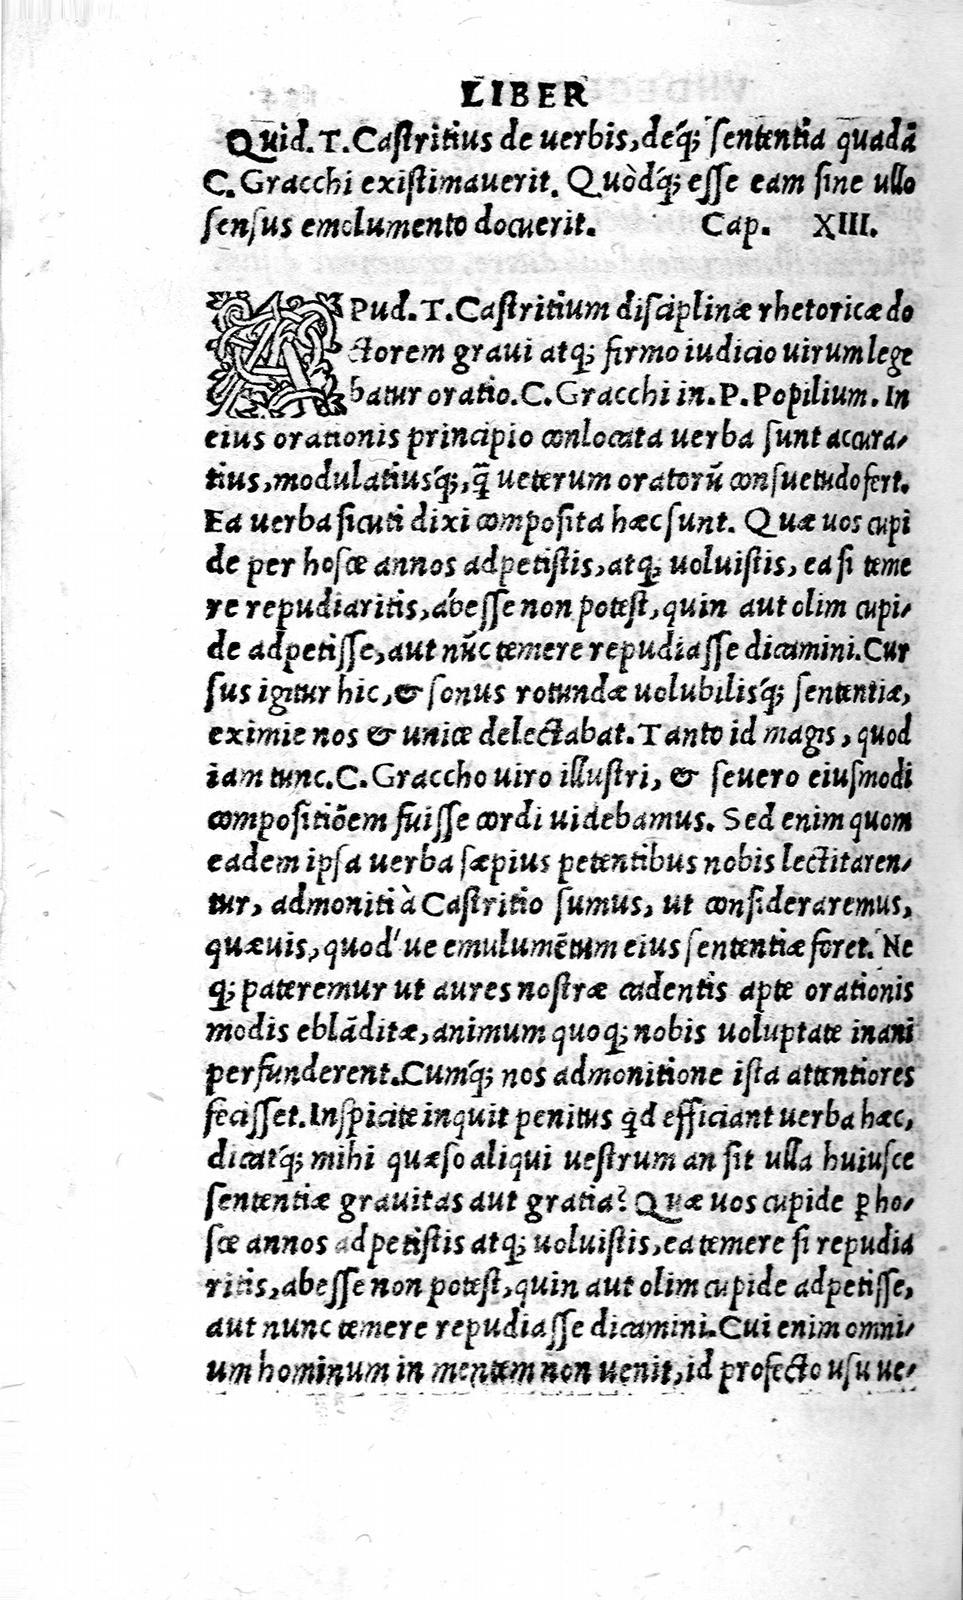 LIBER
Quid. T. Castritius de uerbis, deq́; sententia quadā
C. Gracchi existimauerit. Quòdq́; esse eam sine ullo
sensus emolumento docuerit. Cap. XIII.
APud. T. Castritium disciplinæ rhetoricæ do
ctorem graui atq; firmo iudicio uirum lege
batur oratio. C. Gracchi in. P. Popilium. In
eius orationis principio conlocata uerba sunt accura-
tius, modulatiusq́;, q̃ ueterum oratorũ consuetudo fert.
Ea uerba sicuti dixi composita hæc sunt. Quæ uos cupi
de per hosce annos adpetistis, atq; uoluistis, ea si teme
re repudiaritis, abesse non potest, quin aut olim cupi-
de adpetisse, aut nũc temere repudiasse dicamini. Cur
sus igitur hic, & sonus rotundæ uolubilisq́; sententiæ,
eximie nos & unice delectabat. Tanto id magis, quod
iam tunc. C. Graccho uiro illustri, & seuero eiusmodi
compositiõem fuisse cordi uidebamus. Sed enim quom
eadem ipsa uerba sæpius petentibus nobis lectitaren-
tur, admoniti à Castritio sumus, ut consideraremus,
quæuis, quod'ue emulumẽtum eius sententiæ foret. Ne
q; pateremur ut aures nostræ cadentis apte orationis
modis eblãditæ, animum quoq; nobis uoluptate inani
perfunderent. Cumq́; nos admonitione ista attentiores
fecisset. Inspicite inquit penitus qd efficiant uerba hæc,
dicatq́; mihi quæso aliqui uestrum an sit ulla huiusce
sententiæ grauitas aut gratia? Quæ uos cupide ꝑ ho-
sce annos adpetistis atq; uoluistis, ea temere si repudia
ritis, abesse non potest, quin aut olim cupide adpetisse,
aut nunc temere repudiasse dicamini. Cui enim omni-
um hominum in mentem non uenit, id profecto usu ue-